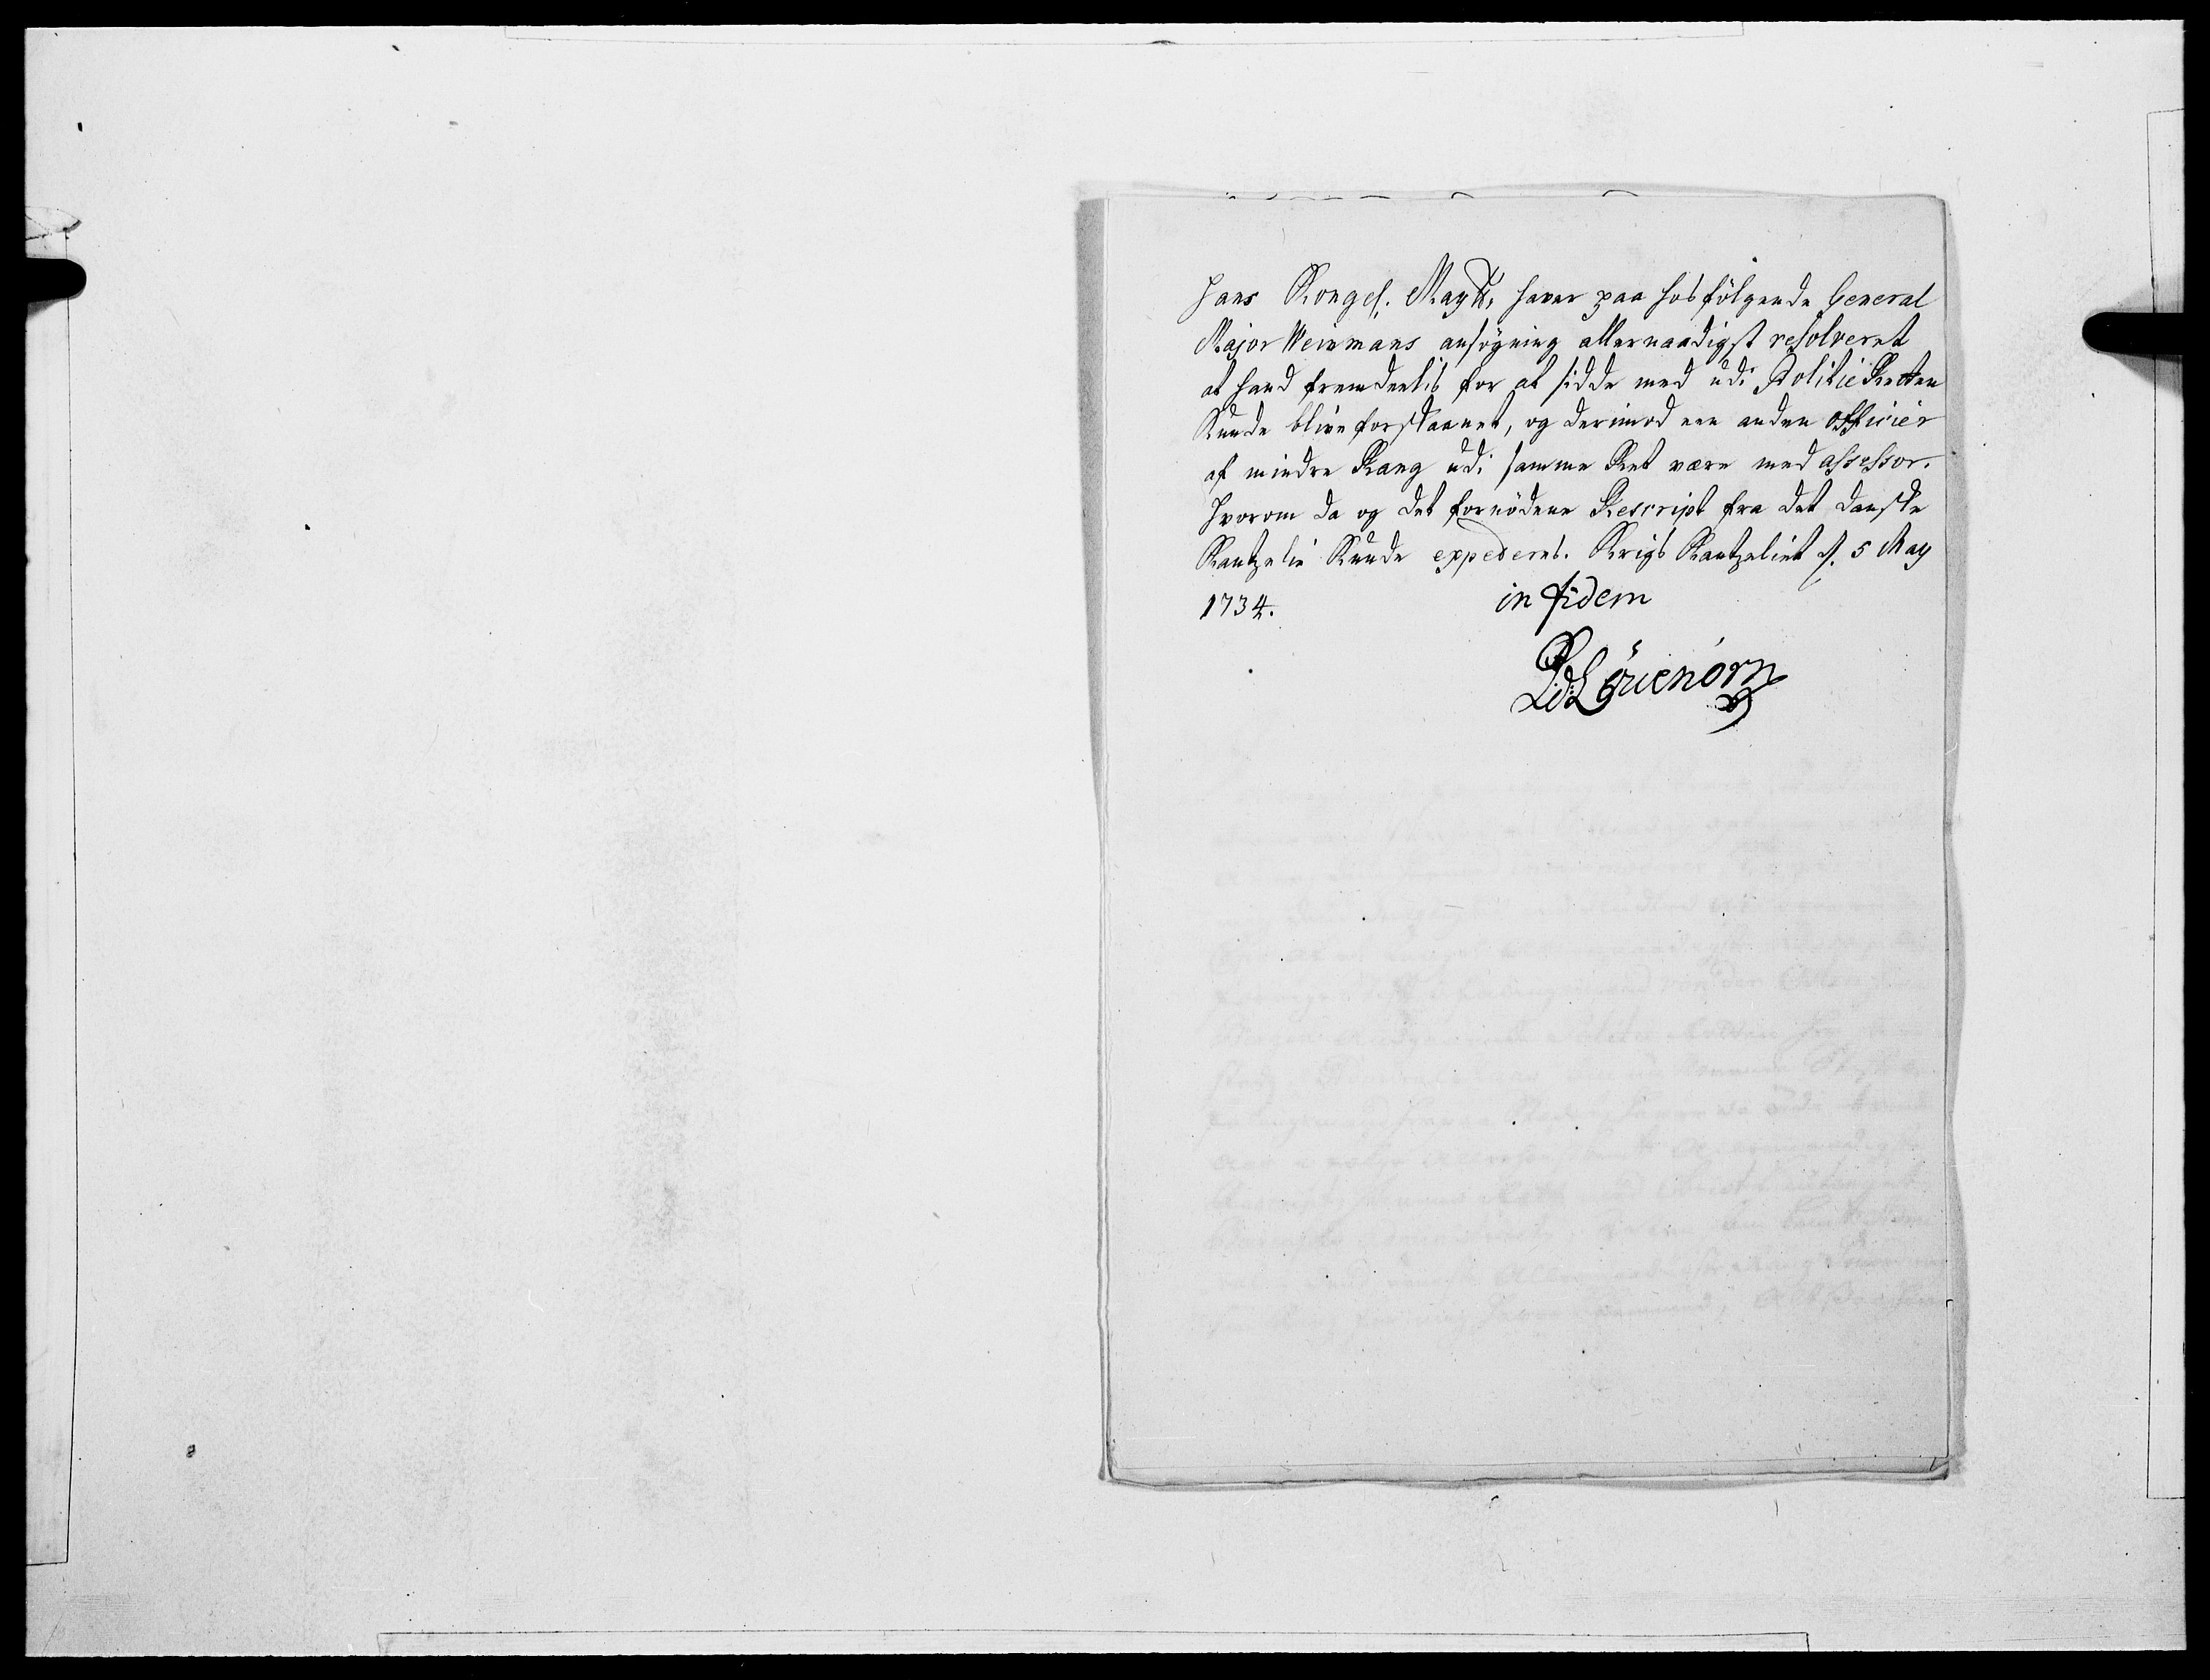 Hans Kongel. Mayt. haver paa hosfölgende General
Major Weinmans ansögning allernaadigst resolveret
at hand fremdeelis for at sidde med udi Politie Retten
Kunde blive forskaanet, og derimod een anden officiér
af mindre Rang udi samme Ret være med assessor.
Hvorom da og det fornödene Rescript fra det danske
Kantzelie Kunde expederes. Krigs Kantzeliet d. 5 May
1734.
in fidem
PdeLövenörn